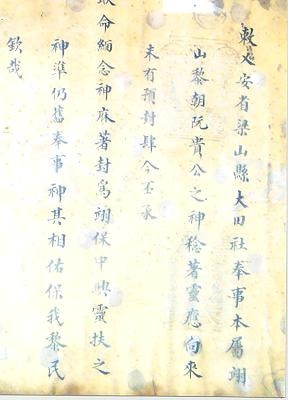 敕乂安省梁山縣大田社奉事本屬翊
山黎朝阮貴公之神稔著靈應向來
未有預封肆今丕承
命緬念神庥著封爲翊保中興靈扶之
神準仍舊奉事神其相佑保我黎民
欽哉